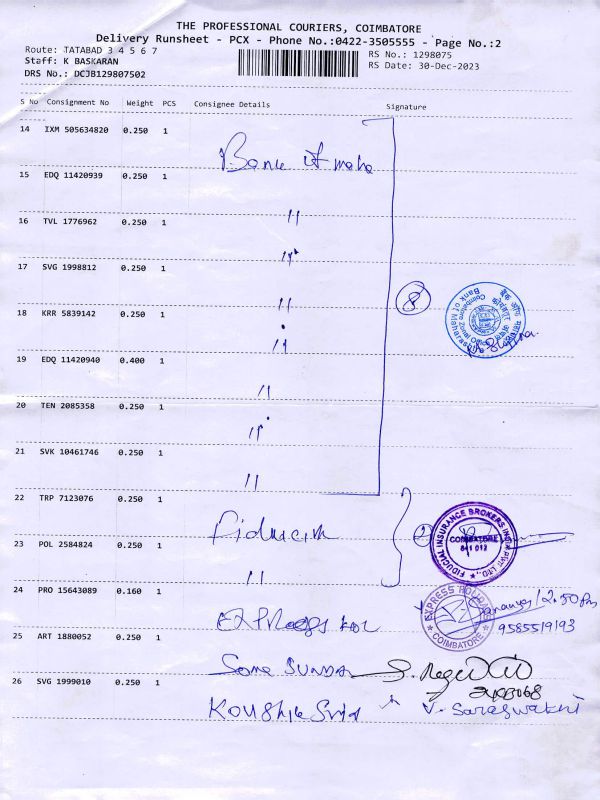 THE PROFESSIONAL COURIERS, COIMBATORE
Delivery Runsheet - PCX - Phone No.:0422-3505555 - Page No.:2
Route: TATABAD 3 4 5 6 7
RS No.: 1298075
Staff: K BASKARAN
RS Date: 30-Dec-2023
DRS No.: DCJB129807502
S No Consignment No Weight PCS Consignee Details Signature
14 IXM 505634820 0.250 1
Bank of maha
15 EDQ 11420939 0.250 1
"
16 TVL 1776962 0.250 1
"
17 SVG 1998812 0.250 1
"
18 KRR 5839142 0.250 1
"
8
Bank of Maharashtra
19 EDQ 11420940 0.400 1
"
20 TEN 2085358 0.250 1
"
21 SVK 10461746 0.250 1
"
22 TRP 7123076 0.250 1
Fiducial
2
FIDUCIAL INSURANCE BROKERS INDIA PVT. LTD.
COIMBATORE
641 012
23 POL 2584824 0.250 1
"
24 PRO 15643089 0.160 1
EXPRESS HOLIDAYS
COIMBATORE
12.50 pm
9585519193
25 ART 1880052 0.250 1
Some SUNDAR
26 SVG 1999010 0.250 1
Koushik
V. Saraswathi